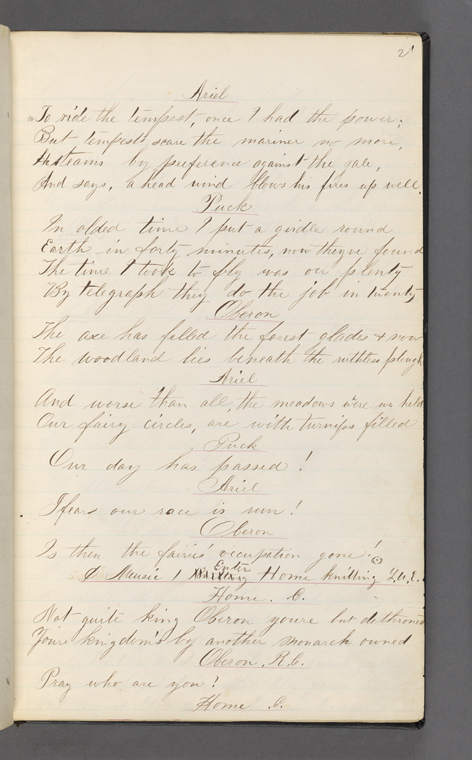 2
Ariel
To ride the tempest, once I had the power;
But tempests scare the mariner no more,
He steams by preference against the gale,
And says, a head wind blows his fires up well.
Puck
In olded time I put a girdle round
Earth in forty minutes, now theyve found
The time I took to fly was our plenty
By telegraph they do the job in twenty
Oberon
The axe has felled the forest glades & now
The woodland lies beneath the ruthless plough
Ariel
And worse than all, the meadows were we held
Our fairy circles, are with turnips filled
Puck
Our day has passed!
Ariel
I fear our race is run!
Oberon
Is then the fairies' occupation gone!
Music 1 Enter Home knitting L.U.E.
Home. C.
Not quite king Oberon youre but dethroned
Youre kingdom's by another monarch owned
Oberon, R.C.
Pray who are you!
Home C.